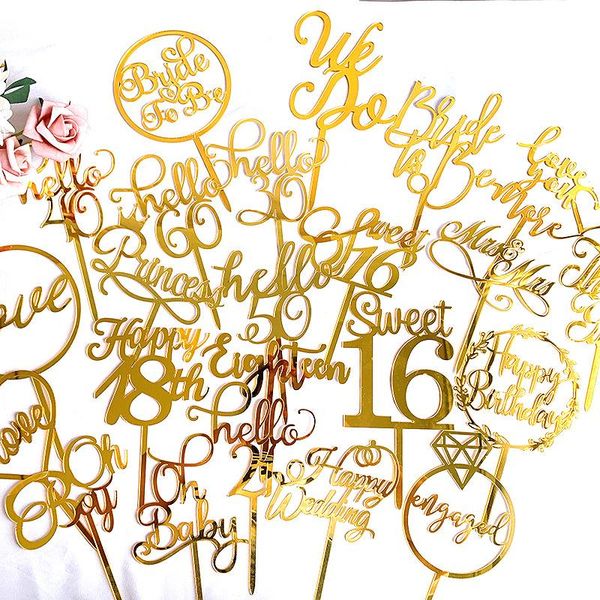 Bride
To Be
We
Do
Bride
to Be
Love
you
more
hello
40
hello
60
hello
30
Sweet
16
Mr &
Mrs
Princess
hello
50
Love
Happy
18th
Eighteen
Sweet
16
Happy
Birthday
Love
Oh
Boy
Oh
Baby
hello
Happy
Wedding
engaged